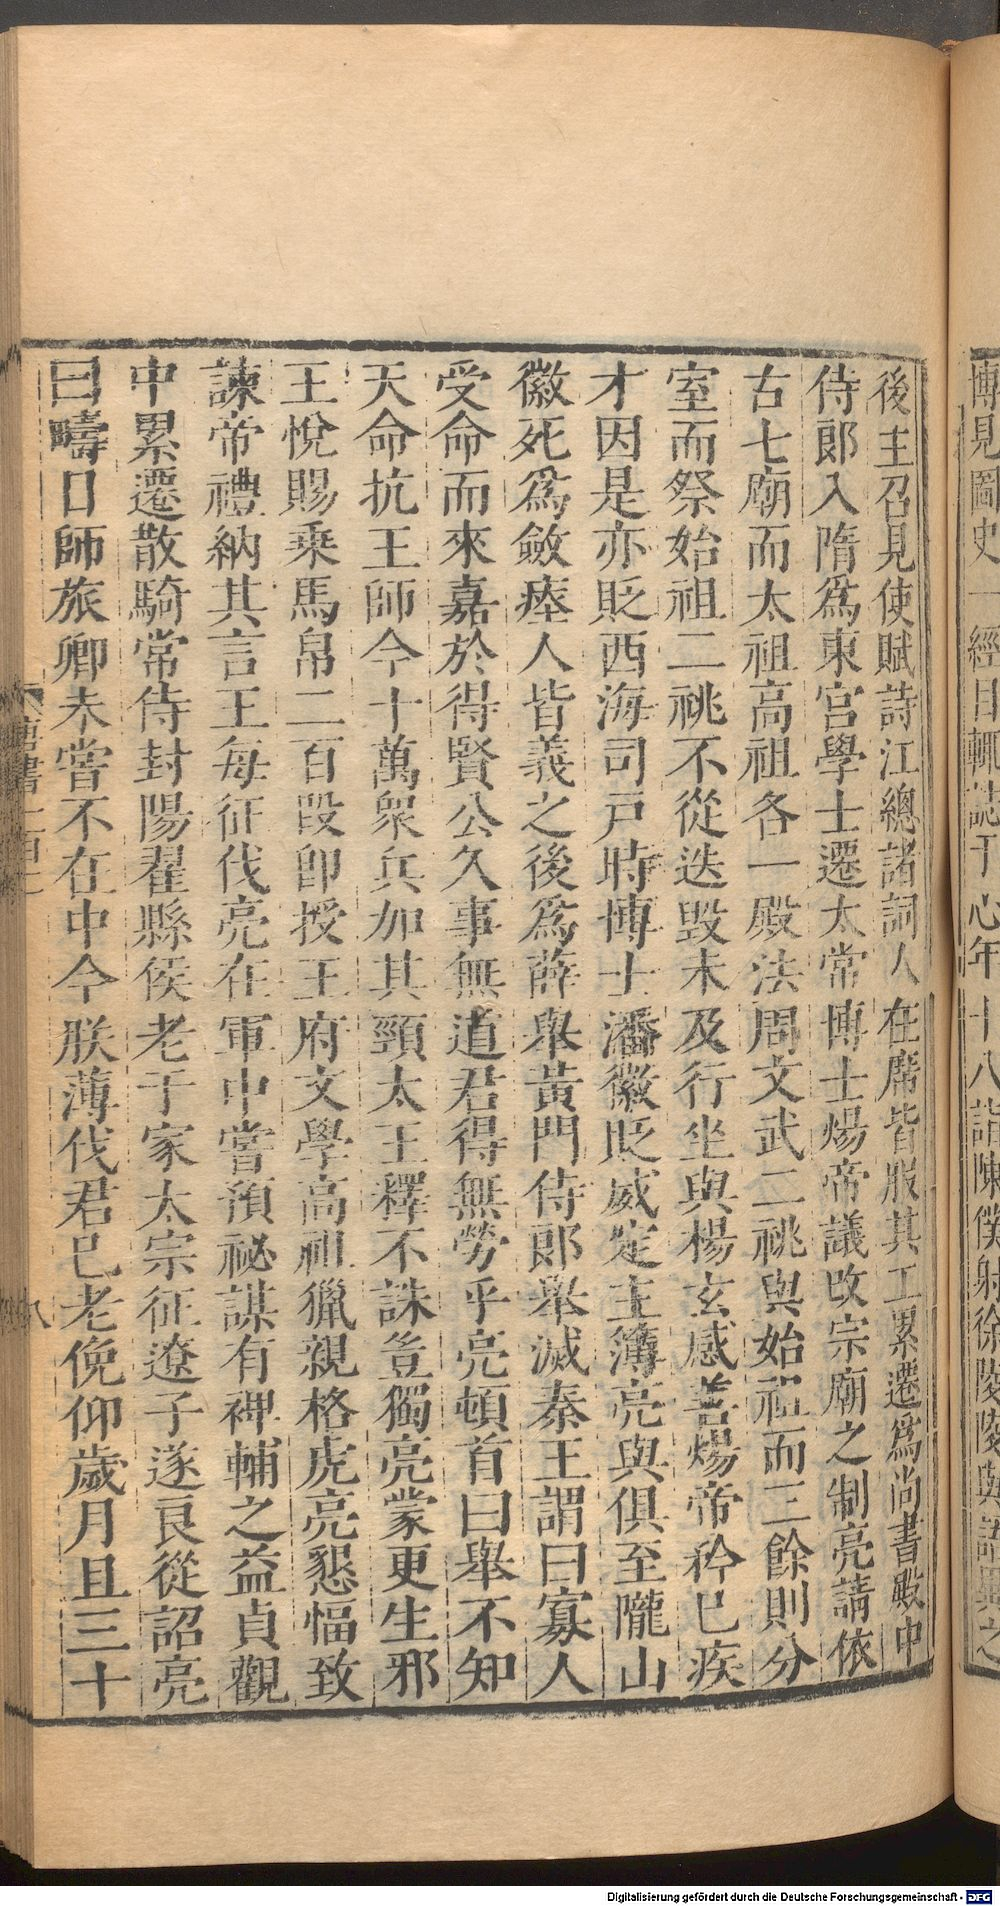 博見圖史一經目輒誌于心年十八詣陳僕射徐陵陵與語異之
後主召見使賦詩江總諸詞人在席皆服其工累遷爲尚書殿中
侍郎入隋爲東宮學士遷太常博士煬帝議改宗廟之制亮請依
古七廟而太祖高祖各一殿法周文武二祧與始祖而三餘則分
室而祭始祖二祧不從迭毀未及行坐與楊玄感善煬帝矜己疾
才因是亦貶西海司戶時博士潘徽貶威定主簿亮與俱至隴山
徽死爲斂瘞人皆義之後爲薛舉黃門侍郎舉滅秦王謂曰寡人
受命而來嘉於得賢公久事無道君得無勞乎亮頓首曰舉不知
天命抗王師今十萬衆兵加其頸大王釋不誅豈獨亮蒙更生邪
王悅賜乘馬帛二百段卽授王府文學高祖獵親格虎亮懇愊致
諫帝禮納其言王每征伐亮在軍中嘗預祕謀有裨輔之益貞觀
中累遷散騎常侍封陽翟縣侯老于家太宗征遼子遂良從詔亮
曰疇日師旅卿未嘗不在中今朕薄伐君已老俛仰歲月且三十
唐書一百二
八
Digitalisierung gefördert durch die Deutsche Forschungsgemeinschaft - DFG